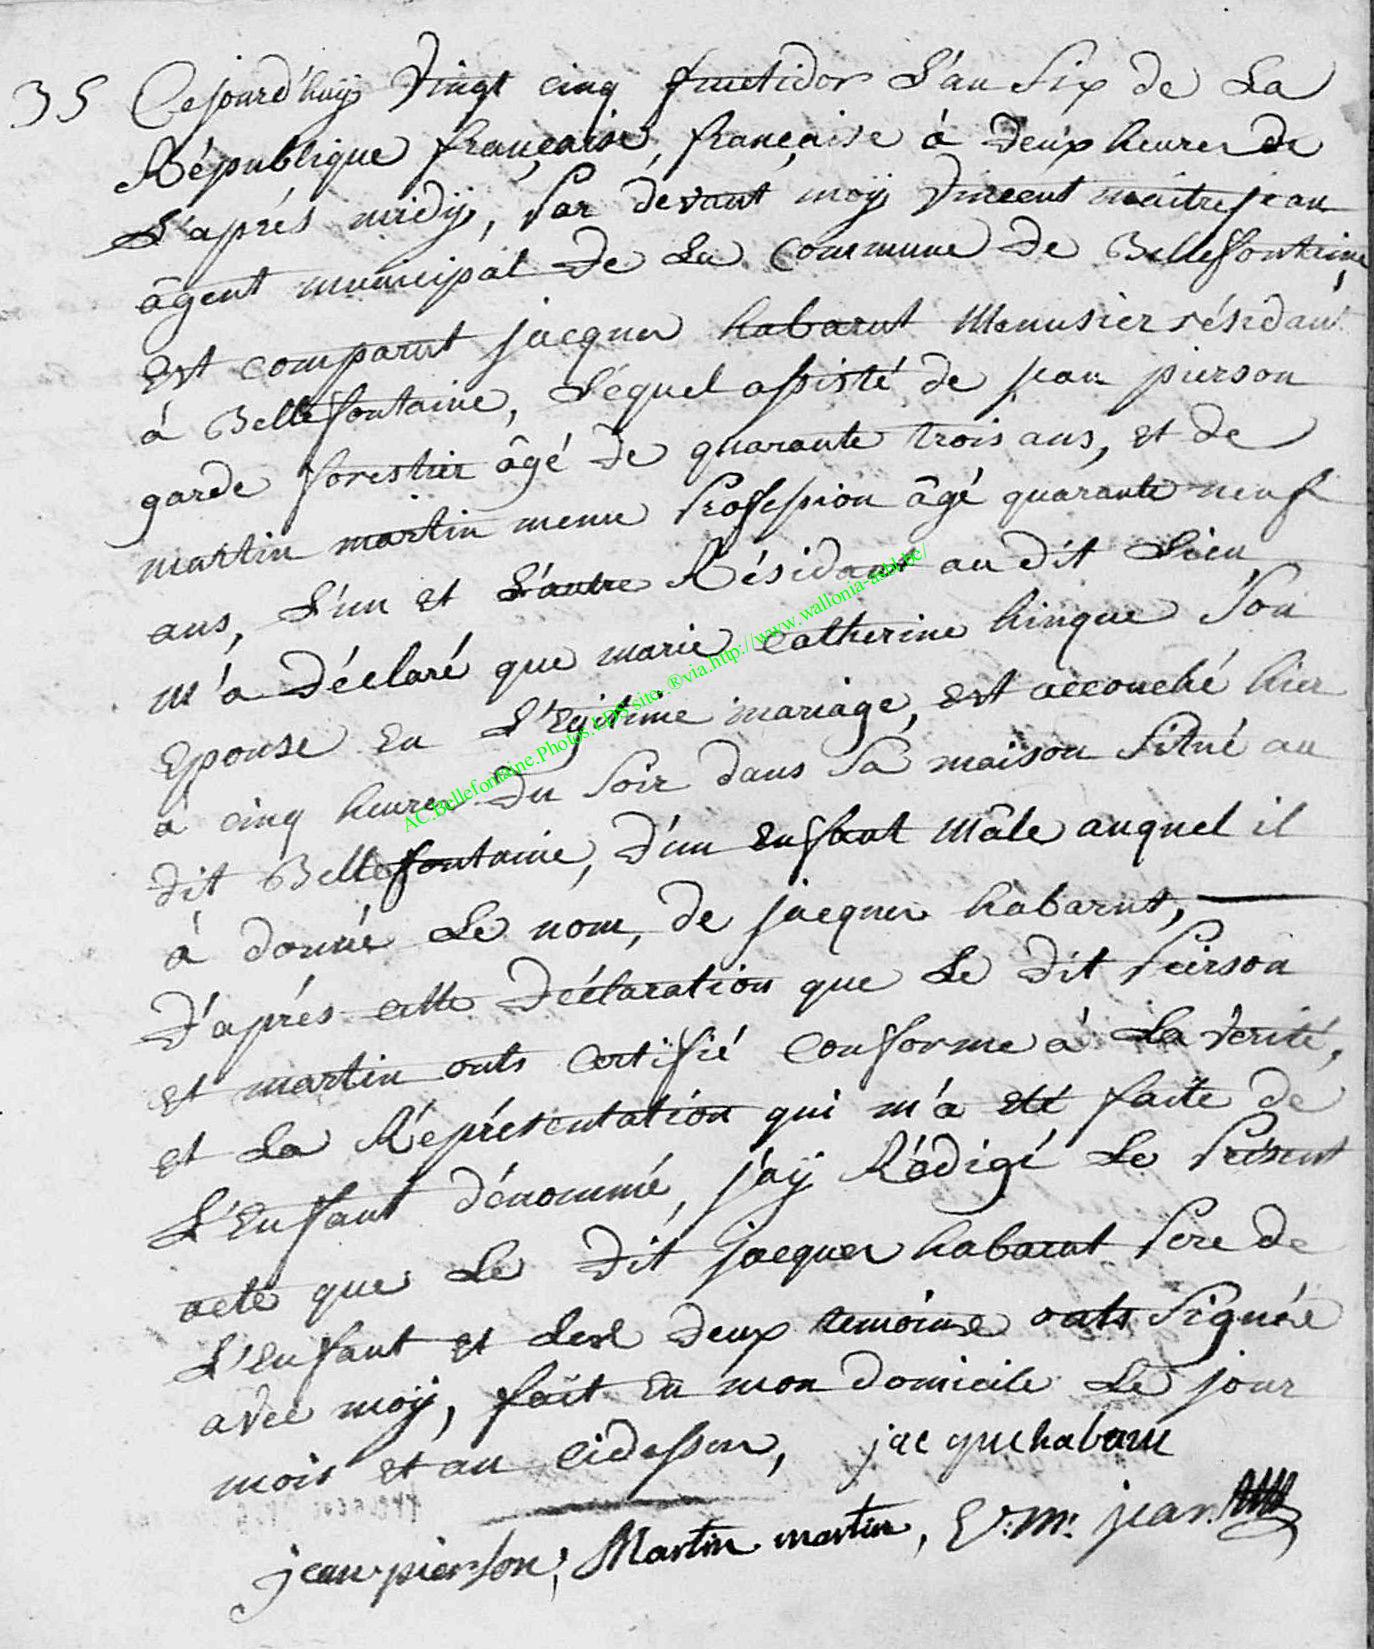 35 Cejourd'huÿ vingt cinq fructidor L'an Six de La
République française, française à deux heures de
L'aprés midÿ, Par devant moÿ Vincent maitrejean
âgent municipal de La Commune de Bellefontaine,
Est comparut jacques habarut Menusier résidant
à Bellefontaine, Léquel assisté de jean pierson
garde forestier âgé de quarante trois ans, et de
martin martin meme Profession âgé quarante neuf
ans, L'un et L'autre Résidant au dit Lieu,
m'a Déclaré que marie catherine hinque Son
Epouse En L'Egitime mariage, est accouché hier
à cinq heures du Soir dans Sa maison Situé au
dit Bellefontaine, D'un Enfant Mâle auquel il
à donné Le nom, de jacques habarut,
D'aprés cette Déclaration que Le Dit Peirson
et martin onts Certifié Conforme à La Verité,
et La Réprésentation qui m'a eté faite de
L'Enfant dénommé, j'aÿ Rédigé Le Présent
acte que Le Dit jacques habarut Pere de
L'enfant et Les Deux temoins onts Signée
avec moÿ, fait En mon Domicile Le jour
mois et an cidessus, jacque habaru
jean pierson, Martin martin, V: M: jean
AC.Bellefontaine.Photos.LDS site. ®via.http://www.wallonia-asbl.be/